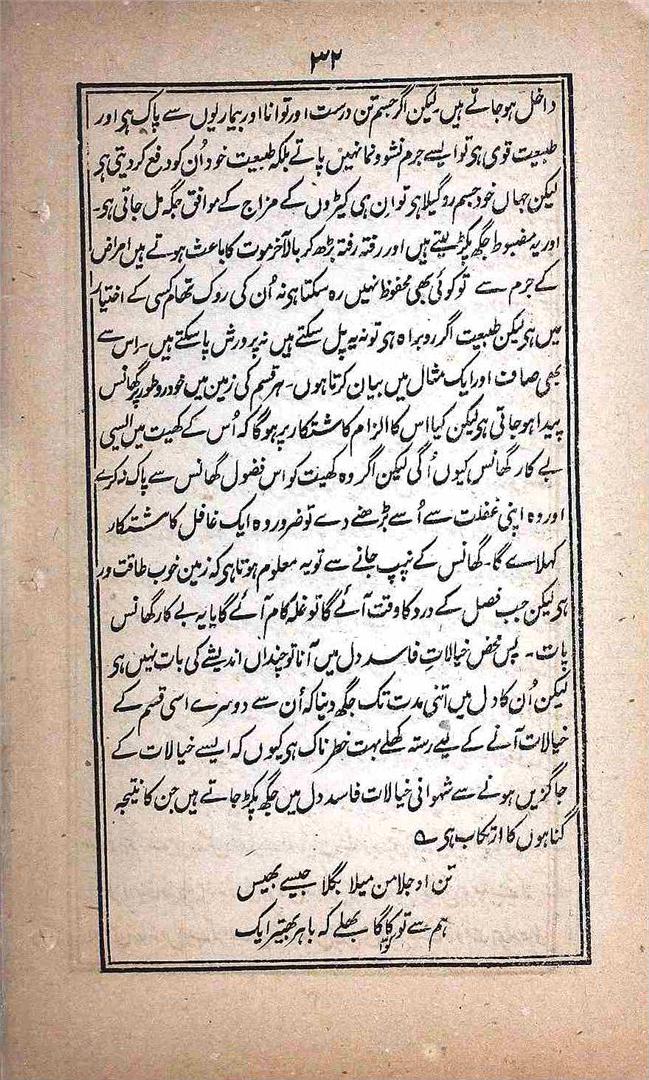 ۳۲
داخل ہوجاتے ہیں۔لیکن اگر جسم تن درست اور توانا اور بیماریوں سے پاک ہی اور
طبیعت قوی ہی تو ایسے جرم نشوونما نہیں پاتے بلکہ طبیعت خود اُن کو دفع کردیتی ہی
لیکن جہاں خود جسم روگیلا ہی تو اِن ہی کیڑوں کے مزاج کے موافق جگہ مل جاتی ہی۔
اور یہ مضبوط جگھ پکڑلیتے ہیں اور رفتہ رفتہ بڑھ کر بالآخر موت کا باعث ہوتے ہیں امراض
کے جرم سے تو کوئی بھی محفوظ نہیں رہ سکتا ہی نہ اُن کی روک تھام کسی کے اختیار
میں ہی لیکن طبیعت اگر روبراہ ہی تو نہ یہ پل سکتے ہیں نہ پرورش پاسکتے ہیں۔اِس سے
بھی صاف اور ایک مثال میں بیان کرتا ہوں۔ہر قسم کی زمین میں خودرو طور پر گھانس
پیدا ہوجاتی ہی لیکن کیا اس کا الزام کاشتکار پر ہوگا کہ اُس کے کھیت میں ایسی
بے کار گھانس کیوں اُگی لیکن اگر وہ کھیت کو اس فضول گھانس سے پاک نہ کرے
اور وہ اپنی غفلت سے اُسے بڑھنے دے تو ضرور وہ ایک غافل کاشتکار
کہلاے گا۔گھانس کے نپپ جانے سے تو یہ معلوم ہوتا ہی کہ زمین خوب طاقت ور
ہی لیکن جب فصل کے درد کا وقت آئے گا تو غلہ کام آئے گا یا یہ بے کار گھانس
پات۔پس محض خیالاتِ فاسد دل میں آنا تو چنداں اندیشے کی بات نہیں ہی
لیکن اُن کا دل میں اتنی مدت تک جگھ دینا کہ اُن سے دوسرے اسی قسم کے
خیالات آنے کے لیے رستہ کھلے بہت خطرناک ہی کیوں کہ ایسے خیالات کے
جاگزیں ہونے سے شہوانی خیالات فاسد دل میں جگھ پکڑ جاتے ہیں جن کا نتیجہ
گناہوں کا ارتکاب ہی ؎
تن اوجلا من میلا بگلا جیسے بھیس
ہم سے تو کاگا بھلے کہ باہر بھیتر ایک
کوّا